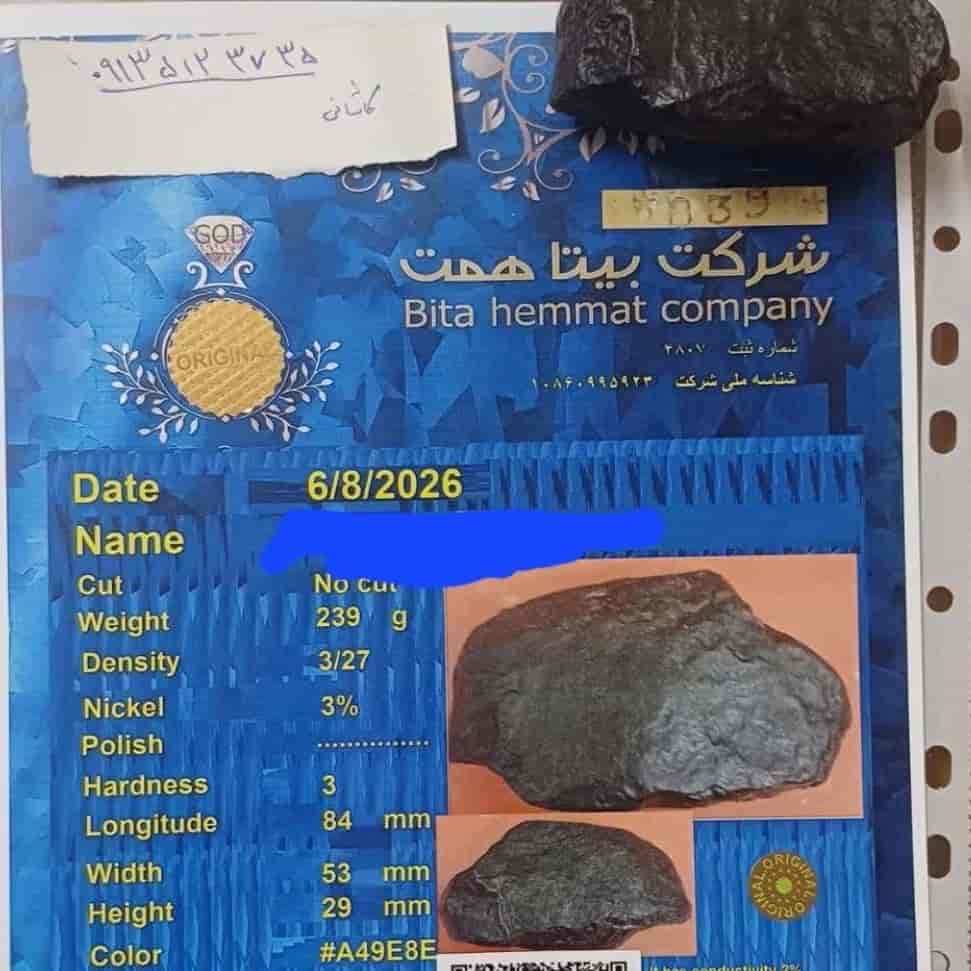 ۰۹۱۳ ۵۱۲ ۳۷ ۳۵
کاشانی
*A39*
GOD
ORIGINAL
شرکت بیتا همت
Bita hemmat company
شماره ثبت ۲۸۰۷
شناسه ملی شرکت ۱۰۸۶۰۹۹۵۹۲۳
Date 6/8/2026
Name
Cut No cut
Weight 239 g
Density 3/27
Nickel 3%
Polish ...............
Hardness 3
Longitude 84 mm
Width 53 mm
Height 29 mm
Color #A49E8E
ORIGINAL ORIGINAL
it has conductivity 2%